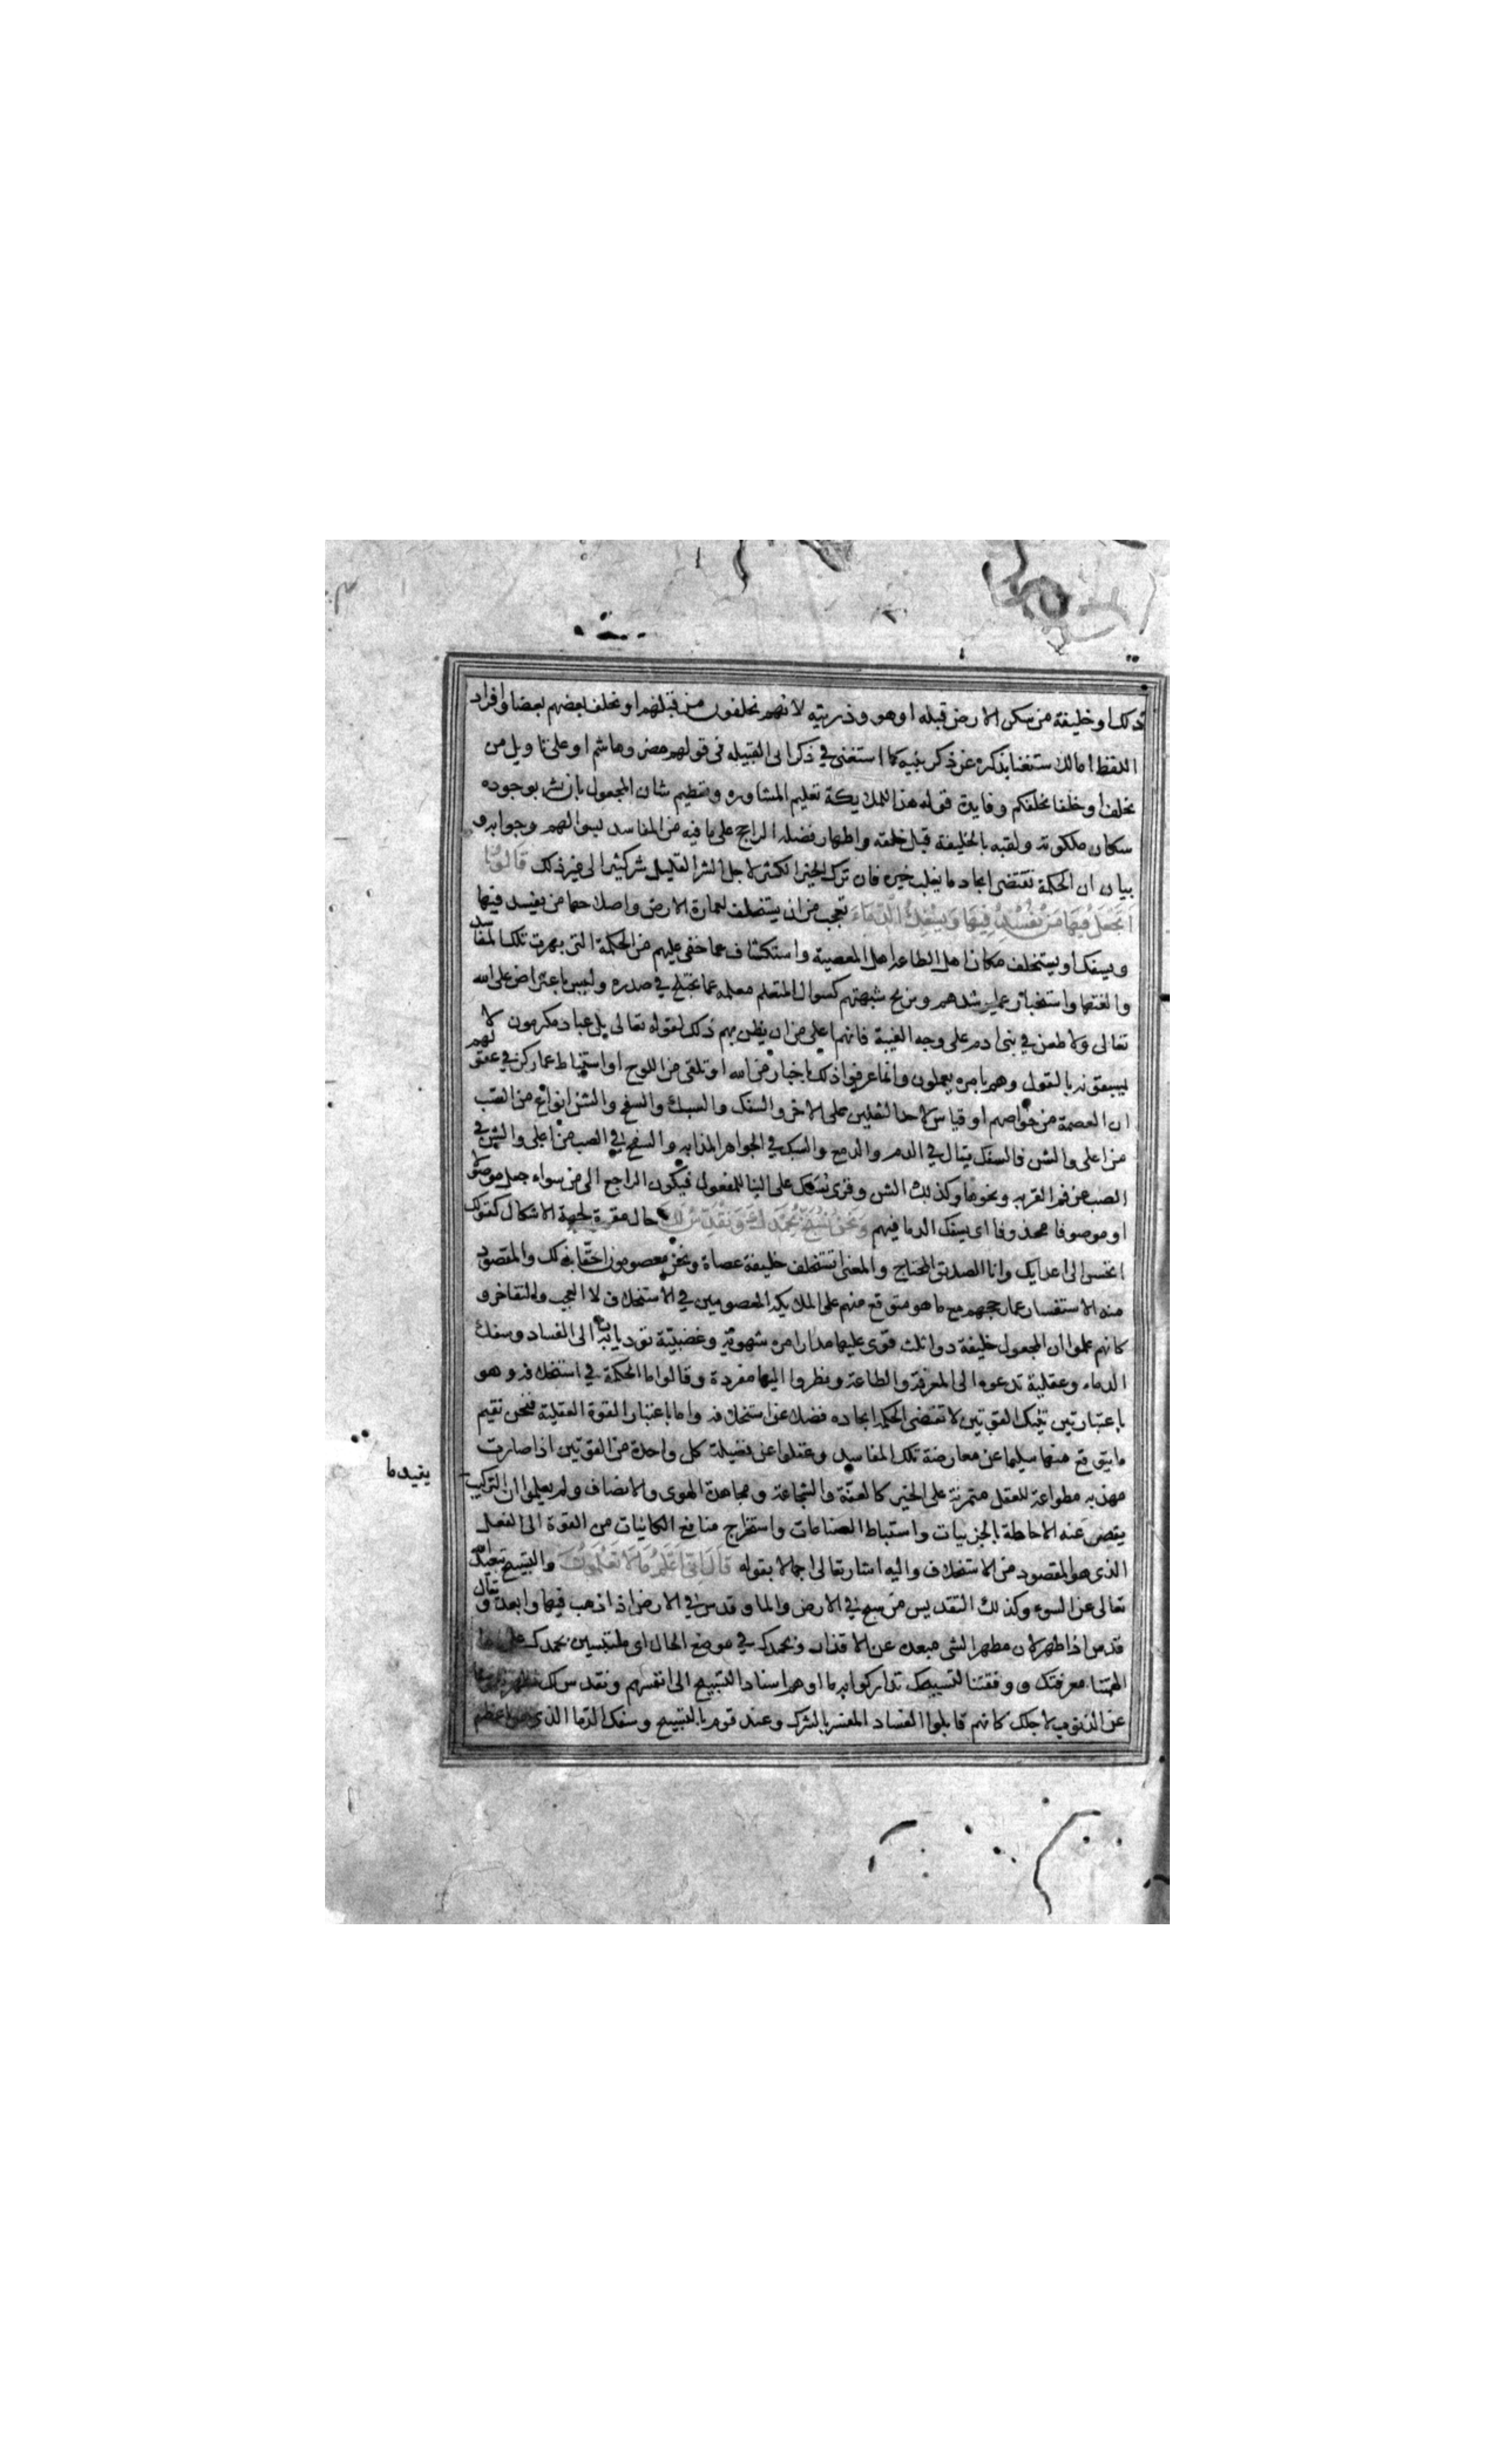 ذلك او خليفة من سكن الارض قبله او هو وذريته لانهم يخلفون من قبلهم او يخلف بعضهم بعضا وافراد
اللفظ اما للاستغنا بذكره عن ذكر بنيه كما استغنى في ذكر ابى القبيله فى قولهم مضر وهاشم او على تاويل من
يخلف او خلفا يخلفكم وفايدة قوله هذا للملايكة تعليم المشاوره وتعظيم شان المجعول بان بشر بوجوده
سكان ملكوته ولقبه بالخليفة قبل خلقه واظهار فضله الراجح على ما فيه من المفاسد بسوالهم وجوابه و
بيان ان الحكمة تقتضى ايجاد ما يغلب خيره فان ترك الخير الكثير لاجل الشر القليل شر كثير الى غير ذلك قالوا
اتجعل فيها من يفسد فيها ويسفك الدماء تعجب من ان يستخلف لعمارة الارض واصلاحها من يفسد فيها
ويسفك او يستخلف مكان اهل الطاعه اهل المعصية واستكشاف عما خفى عليهم من الحكمة التى بهرت تلك المفاسد
والغتها واستخبار عما يرشدهم ويزيح شبهتهم كسوال المتعلم معلمه عما يختلج في صدره وليس باعتراض على الله
تعالى ولا طعن في بنى ادم على وجه الغيبة فانهم اعلى من ان يظن بهم ذلك لقوله تعالى بل عباد مكرمون لا
يسبقونه بالقول وهم بامره يعملون وانما عرفوا ذلك باخبار من الله او تلقى من اللوح او استنباط عما ركز في عقولهم
ان العصمة من خواصهم او قياس لاحد الثقلين على الاخر والسفك والسبك والسفح والشن انواع من الصب
فالسفك يقال في الدم والدمع والسبك في الجواهر المذابه والسفح في الصب من اعلى والشن في
الصب عن فم القربه ونحوها وكذلك السن وقرى يسفك على البنا للمفعول فيكون الراجع الى من سواء جعل موصولا
او موصوفا محذوفا اى يسفك الدما فيهم ونحن نسبح بحمدك ونقدس لك حال مقررة لجهة الاشكال كقولك
اتحسن الى اعدايك وانا الصديق المحتاج والمعنى اتستخلف خليفة عصاة ونحن معصومون احقا بذلك والمقصود
منه الاستفسار عما رجحهم مع ما هو متوقع منهم على الملايكه المعصومين في الاستخلاف لا العجب والتفاخر و
كانهم علموا ان المجعول خليفة ذو ثلث قوى عليها مدار امره شهوية وغضبية توديان به الى الفساد وسفك
الدماء وعقلية تدعوه الى المعرفة والطاعة ونظروا اليها مفردة وقالوا ما الحكمة في استخلافه وهو
باعتبار تينك القوتين لا تقتضى الحكمه ايجاده فضلا عن استخلافه واما باعتبار القوة العقلية فنحن نقيم
ما يتوقع منها سليما عن معارضة تلك المفاسد وغفلوا عن فضيلة كل واحدة من القوتين اذا صارت
مهذبه مطواعة للعقل متمرنة على الخير كالعفة والشجاعة ومجاهدة الهوى والانصاف ولم يعلموا ان التركيب
يفيد ما
يقصر عنه الاحاطة بالجزييات واستنباط الصناعات واستخراج منافع الكائنات من القوة الى الفعل
الذى هو المقصود من الاستخلاف واليه اشار تعالى اجمالا بقوله قال انى اعلم ما لا تعلمون والتسبيح تبعيد الله
تعالى عن السوء وكذلك التقديس من سبح في الارض والما وقدس في الارض اذا ذهب فيها وابعد ويقال
قدس اذا طهر لان مطهر الشى مبعده عن الاقذار وبحمدك في موضع الحال اى ملتبسين بحمدك على ما
الهمتنا معرفتك ووفقتنا لتسبيحك تداركوا به ما اوهم اسناد التسبيح الى انفسهم ونقدس لك نطهر نفوسنا
عن الذنوب لاجلك كانهم قابلوا الفساد المفسر بالشرك وعند قوم بالتسبيح وسفك الدما الذى هو اعظم